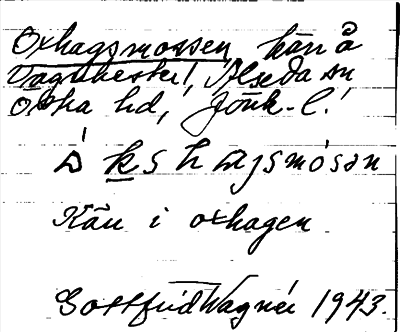 Oxhagsmossen, kärr å
Vagnhester, Alseda sn
Östra hd, Jönk. l.
ò k s h agsmósan
Kärr i oxhagen
Gottfrid Wagnér 1943.